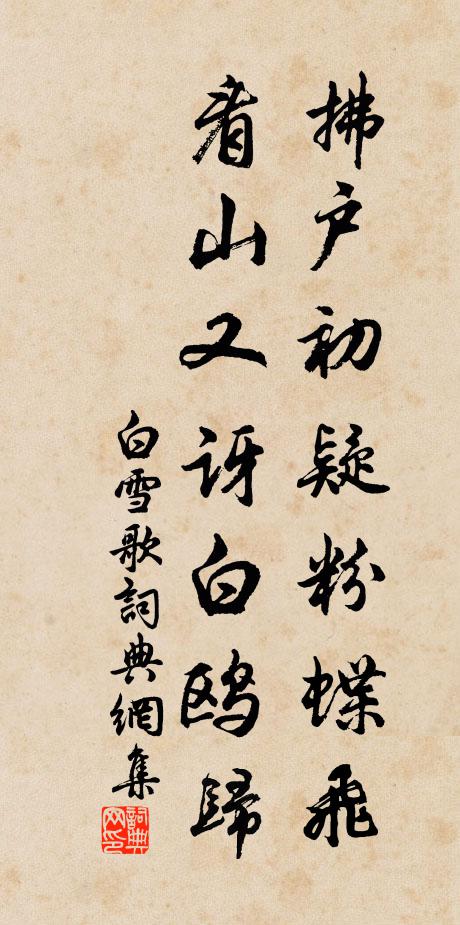 拂户初疑粉蝶飛
看山又訝白鷗歸
白雪歌詞典網集
詞典網印